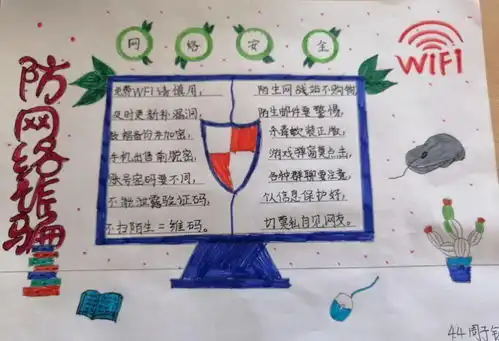 网络安全
WIFI
防网络诈骗
免费WFI请慎用,
及时更新补漏洞,
数据备份并加密,
手机出售需脱密,
账号密码要不同,
不能泄露验证码,
不扫陌生二维码。
陌生网站不购物,
陌生邮件要警惕,
杀毒软装正版,
游戏弹窗莫点击,
各种群聊要注意,
个信息保护好,
切莫私自见网友。
44周子